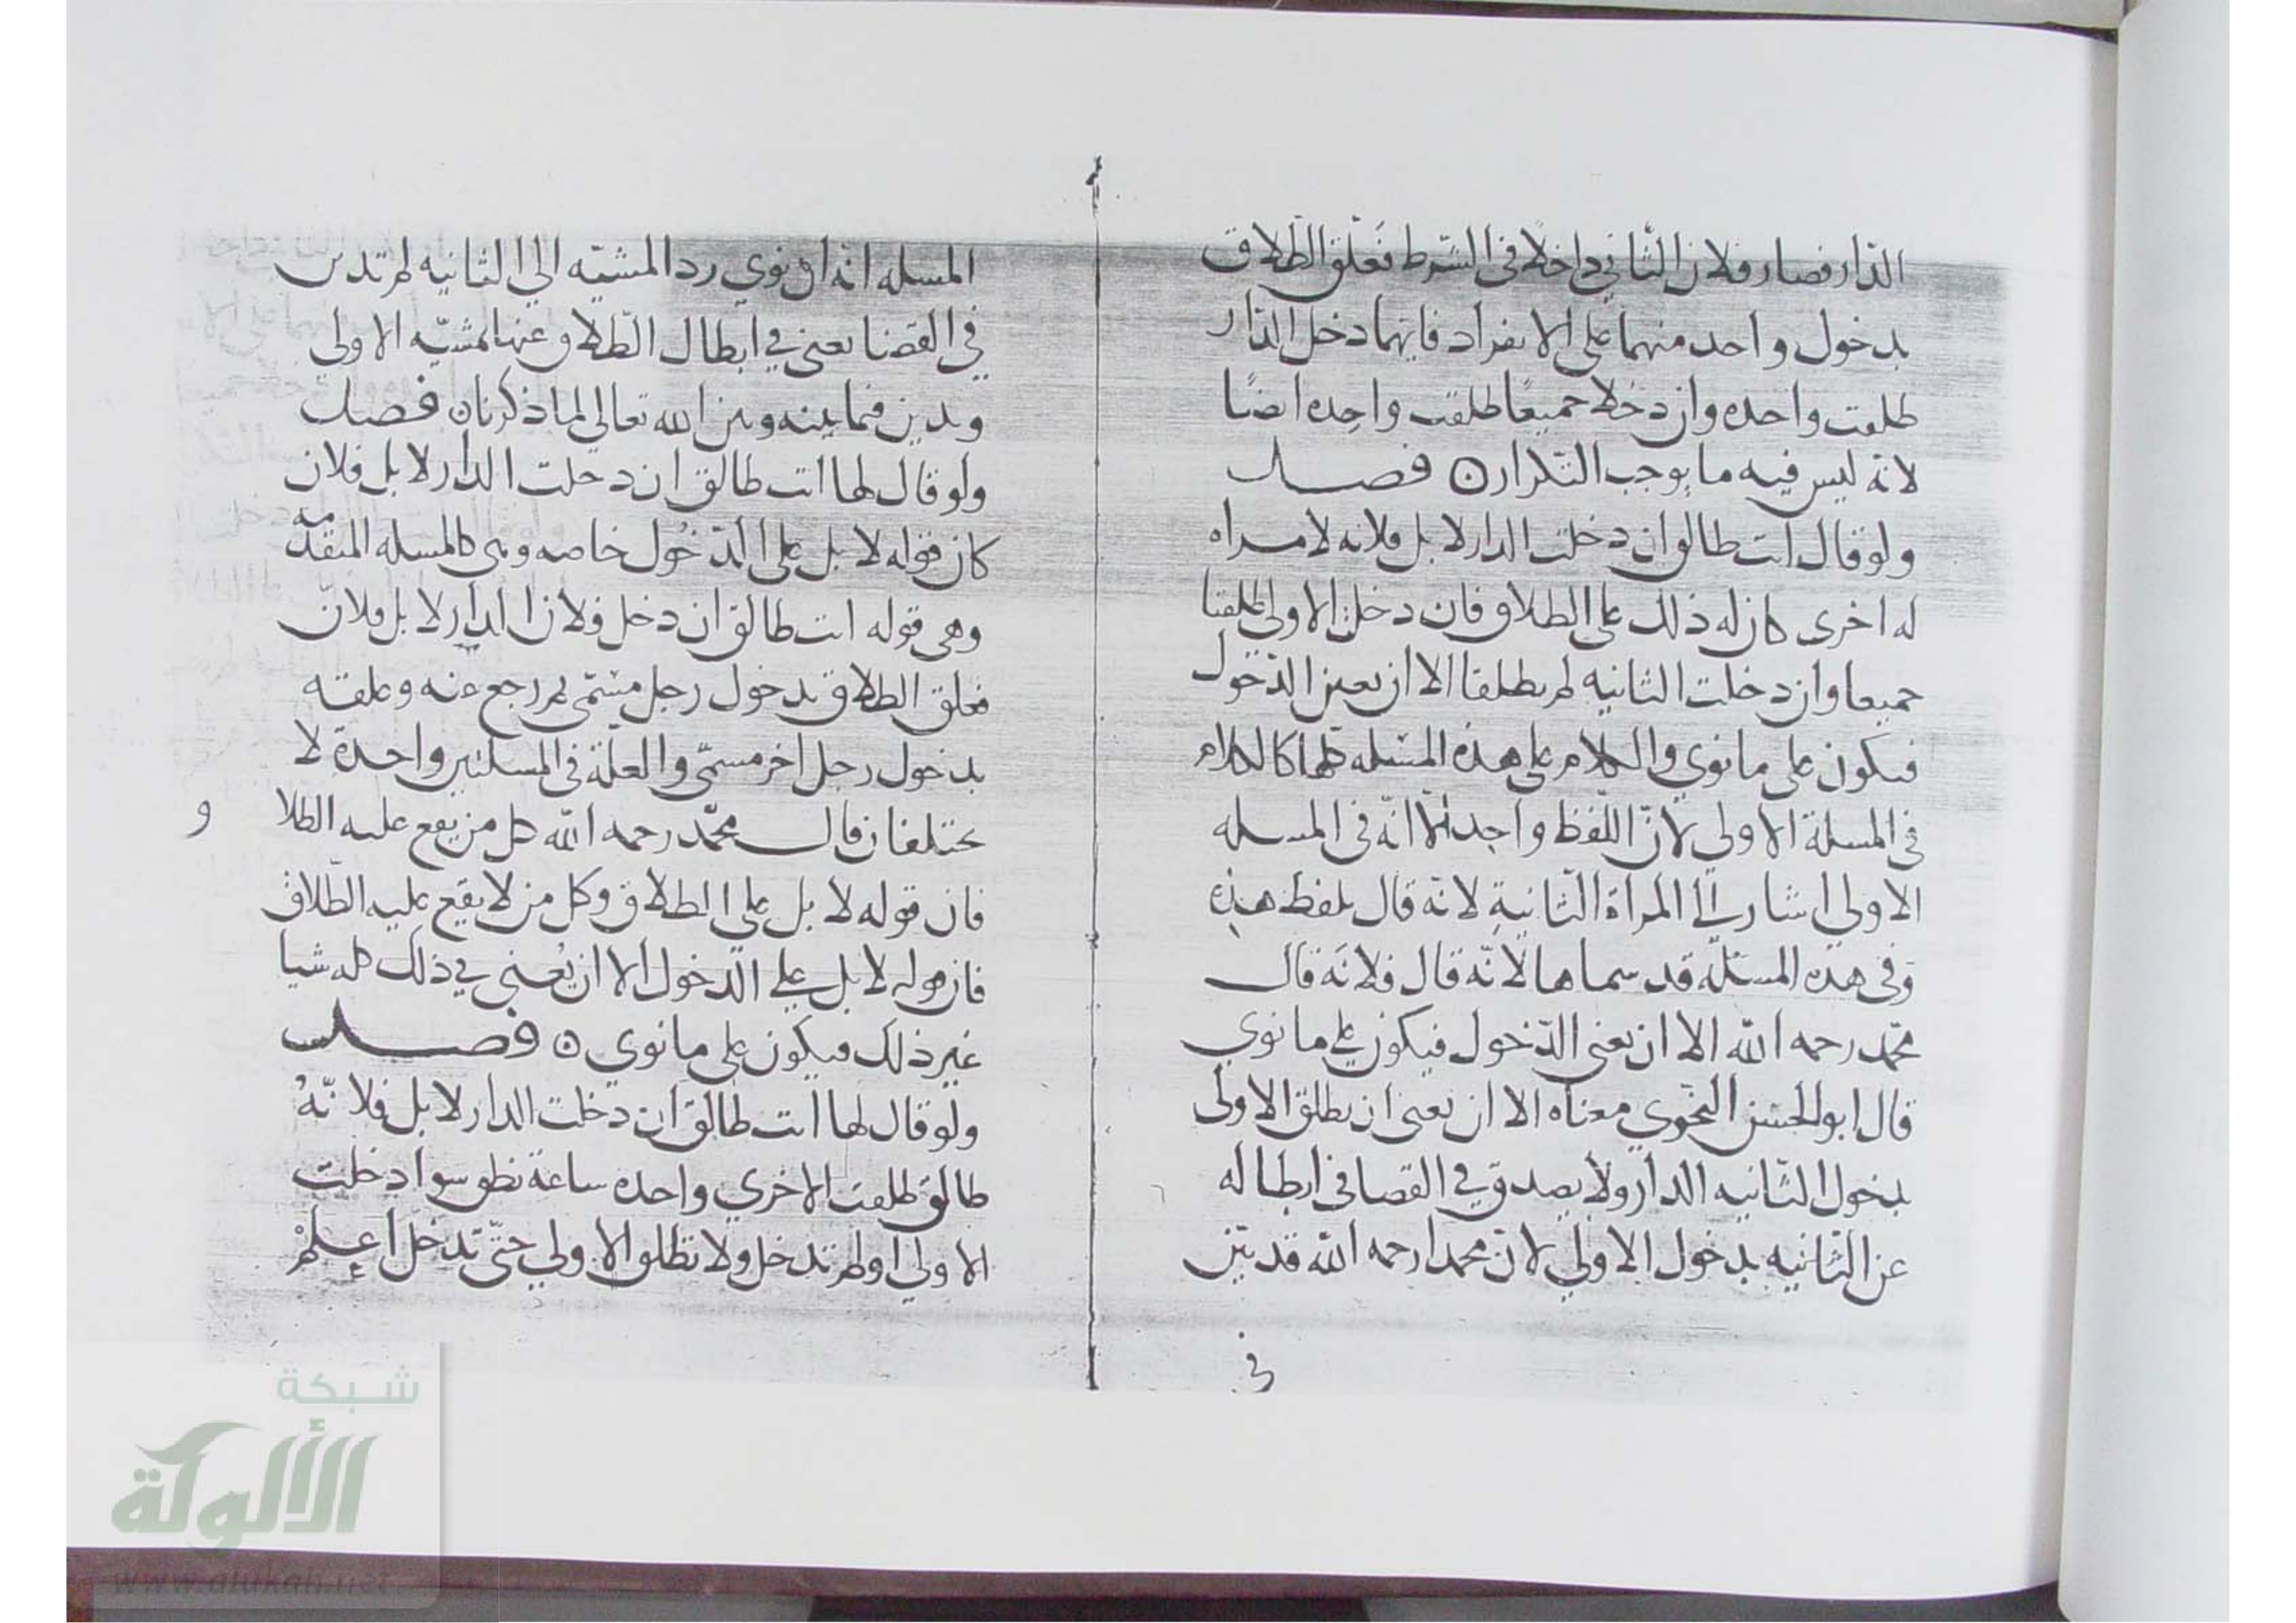 الدّار فصار فلان الثّاني داخلًا في الشّرط فعلّق الطّلاق
بدخول واحد منهما على الانفراد فايهما دخل الدّار
طلقت واحده وان دخلا جميعًا طلقت واحده ايضًا
لانّه ليس فيه ما يوجب التّكرار ه فصل
ولو قال انت طالق ان دخلت الدار لا بل فلانه لامراه
له اخرى كان له ذلك على الطلاق فان دخلت الاولى طلقتا
جميعا وان دخلت الثانيه لم يطلقا الا ان يعني الدّخول
فيكون على ما نوي والكلام على هذه المسئله كلها كالكلام
في المسلة الاولي لانّ اللّفظ واحد الّا انّه في المسله
الاولي اشار الي المراة الثّانية لانّه قال بلفظ هذه
وفي هذه المسئله قد سماها لانّه قال فلانَة قال
محمّد رحمه الله الا ان يعني الدّخول فيكون على ما نوي
قال ابو الحسن النّحوي معناه الا ان يعني ان يطلق الاولى
بدخول الثّانيه الدار ولا يصدق في القضا في ابطاله
عن الثّانيه بدخول الاولي لانّ محمدا رحمه الله قد بيّن
في
المسله انّه ان نوي ردّ المشيّه الي الثانيه لم تدين
في القضا يعني في ابطال الطّلاق عنها بمشيّه الاولى
ويدين فيما بينه وبين الله تعالي لما ذكرنا ه فصل
ولو قال لها انت طالق ان دخلت الدار لا بل فلان
كان قوله لا بل على الدّخُول خاصه وهي كالمسله المتقدّمه
وهي قوله انت طالق ان دخل فلان الدار لا بل فلان
فعلق الطلاق بدخول رجل مسمّى ثم رجع عنه وعلقه
بدخول رجل اخر مسمّي والعلّة في المسلتين واحدة لا
يختلفان قال محمّد رحمه الله كل من يقع عليه الطلا
و
فان قوله لا بل على الطلاق وكل من لا يقع عليه الطّلاق
فان قوله لا بل علي الدّخول الا ان يَعني في ذلك كله شيا
غير ذلك فيكون على ما نوي ه فصل
ولو قال لها انت طالق ان دخلت الدار لا بل فلانّهُ
طالق طلقت الاخري واحده ساعة نطق سوا دخلت
الاولي او لم تدخل ولا تطلق الاولي حتّي تدخل اعلم
شبكة
الألوكة
www.alukah.net